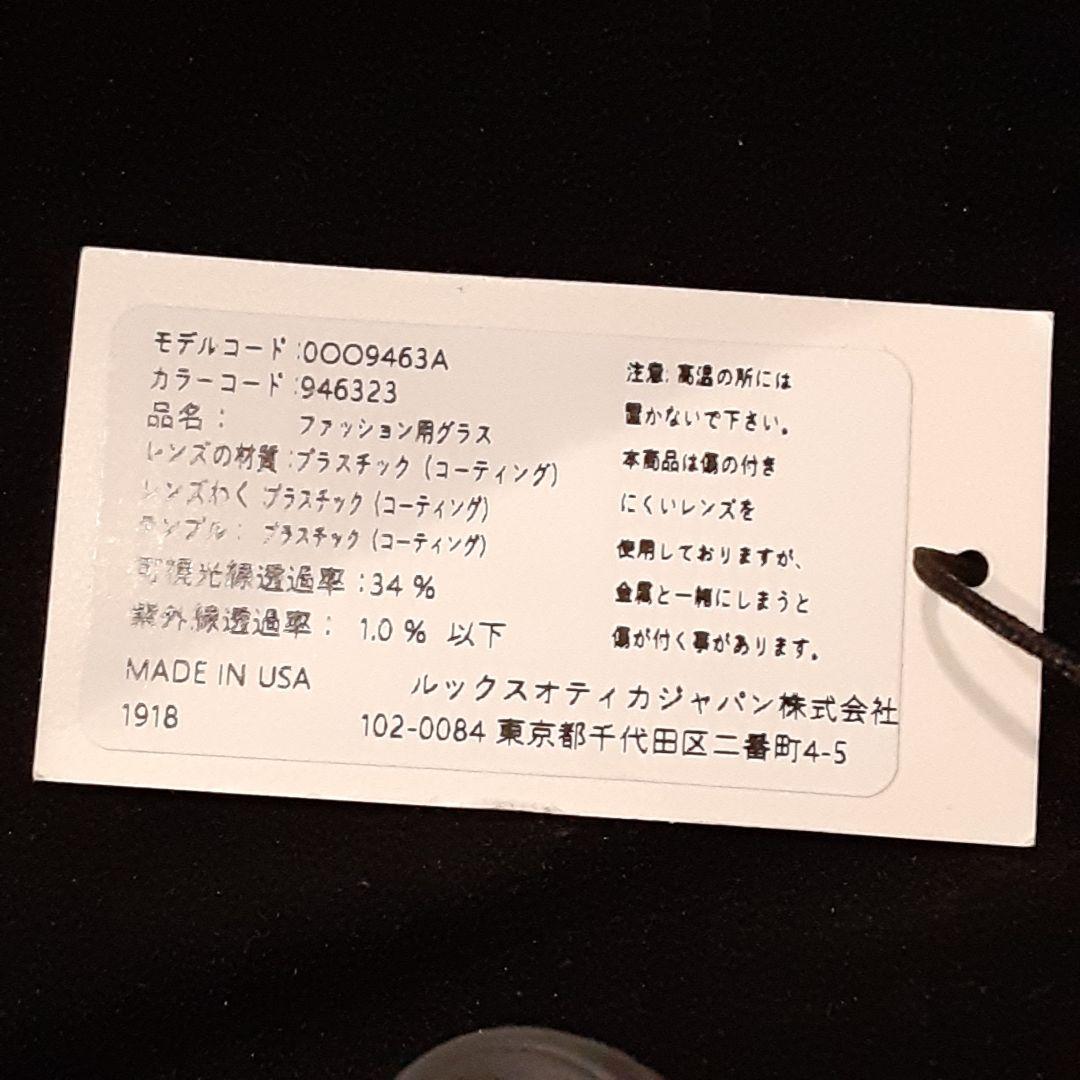 モデルコード:0OO9463A
カラーコード:946323
品名: ファッション用グラス
レンズの材質:プラスチック (コーティング)
レンズわく プラスチック (コーティング)
テンプル: プラスチック (コーティング)
可視光線透過率:34 %
紫外線透過率: 1.0 % 以下
MADE IN USA
1918
注意:高温の所には
置かないで下さい。
本商品は傷の付き
にくいレンズを
使用しておりますが、
金属と一緒にしまうと
傷が付く事があります。
ルックスオティカジャパン株式会社
102-0084 東京都千代田区二番町4-5